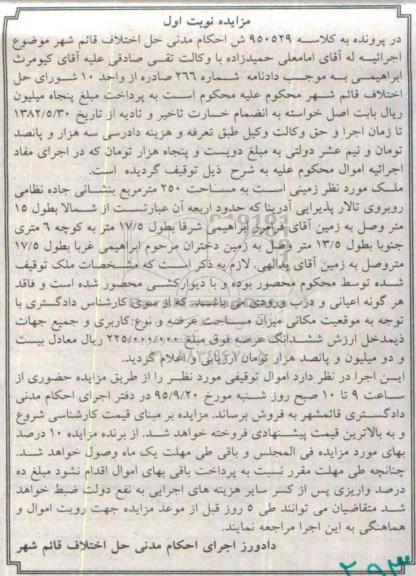 مزایده نوبت اول
در پرونده به کلاسه ۹۵۰۵۲۹ ش احکام مدنی حل اختلاف قائم شهر موضوع
اجرائیه له آقای امامعلی حمیدزاده با وکالت تقی صادقی علیه آقای کیومرث
ابراهیمی به موجب دادنامه شماره ۲۶۶ صادره از واحد ۱۰ شورای حل
اختلاف قائم شهر محکوم علیه محکوم است به پرداخت مبلغ پنجاه میلیون
ریال بابت اصل خواسته به انضمام خسارت تاخیر و تادیه از تاریخ ۱۳۸۲/۵/۳۰
تا زمان اجرا و حق وکالت وکیل طبق تعرفه و هزینه دادرسی سه هزار و پانصد
تومان و نیم عشر دولتی به مبلغ دویست و پنجاه هزار تومان که در اجرای مفاد
اجرائیه اموال محکوم علیه به شرح ذیل توقیف گردیده است.
ملک مورد نظر زمینی است به مساحت ۲۵۰ مترمربع بنشانی جاده نظامی
روبروی تالار پذیرایی آدرینا که حدود اربعه آن عبارتست از شمالا بطول ۱۵
متر وصل به زمین آقای فرامرز ابراهیمی شرقا بطول ۱۷/۵ متر به کوچه ۶ متری
جنوبا بطول ۱۳/۵ متر وصل به زمین دختران مرحوم ابراهیمی غربا بطول ۱۷/۵
متروصل به زمین آقای یدالهی. لازم به ذکر است که مشخصات ملک توقیف
شده توسط محکوم محصور بوده و با دیوارکشی محصور شده است و فاقد
هر گونه اعیانی و درب ورودی می باشد. که از سوی کارشناس دادگستری با
توجه به موقعیت مکانی میزان مساحت عرصه و نوع کاربری و جمیع جهات
ذیمدخل ارزش ششدانگ عرصه فوق مبلغ ۲۲۵/۰۰۰/۰۰۰ ریال معادل بیست
و دو میلیون و پانصد هزار تومان ارزیابی و اعلام گردید.
این اجرا در نظر دارد اموال توقیفی مورد نظر را از طریق مزایده حضوری از
ساعت ۹ تا ۱۰ صبح روز شنبه مورخ ۹۵/۹/۲۰ در دفتر اجرای احکام مدنی
دادگستری قائمشهر به فروش برساند. مزایده بر مبنای قیمت کارشناسی شروع
و به بالاترین قیمت پیشنهادی فروخته خواهد شد. از برنده مزایده ۱۰ درصد
بهای مورد مزایده فی المجلس و باقی طی مهلت یک ماه وصول خواهد شد.
چنانچه طی مهلت مقرر نسبت به پرداخت باقی بهای اموال اقدام نشود مبلغ ده
درصد واریزی پس از کسر سایر هزینه های اجرایی به نفع دولت ضبط خواهد
شد متقاضیان می توانند طی ۵ روز قبل از موعد مزایده جهت رویت اموال و
هماهنگی به این اجرا مراجعه نمایند.
دادورز اجرای احکام مدنی حل اختلاف قائم شهر